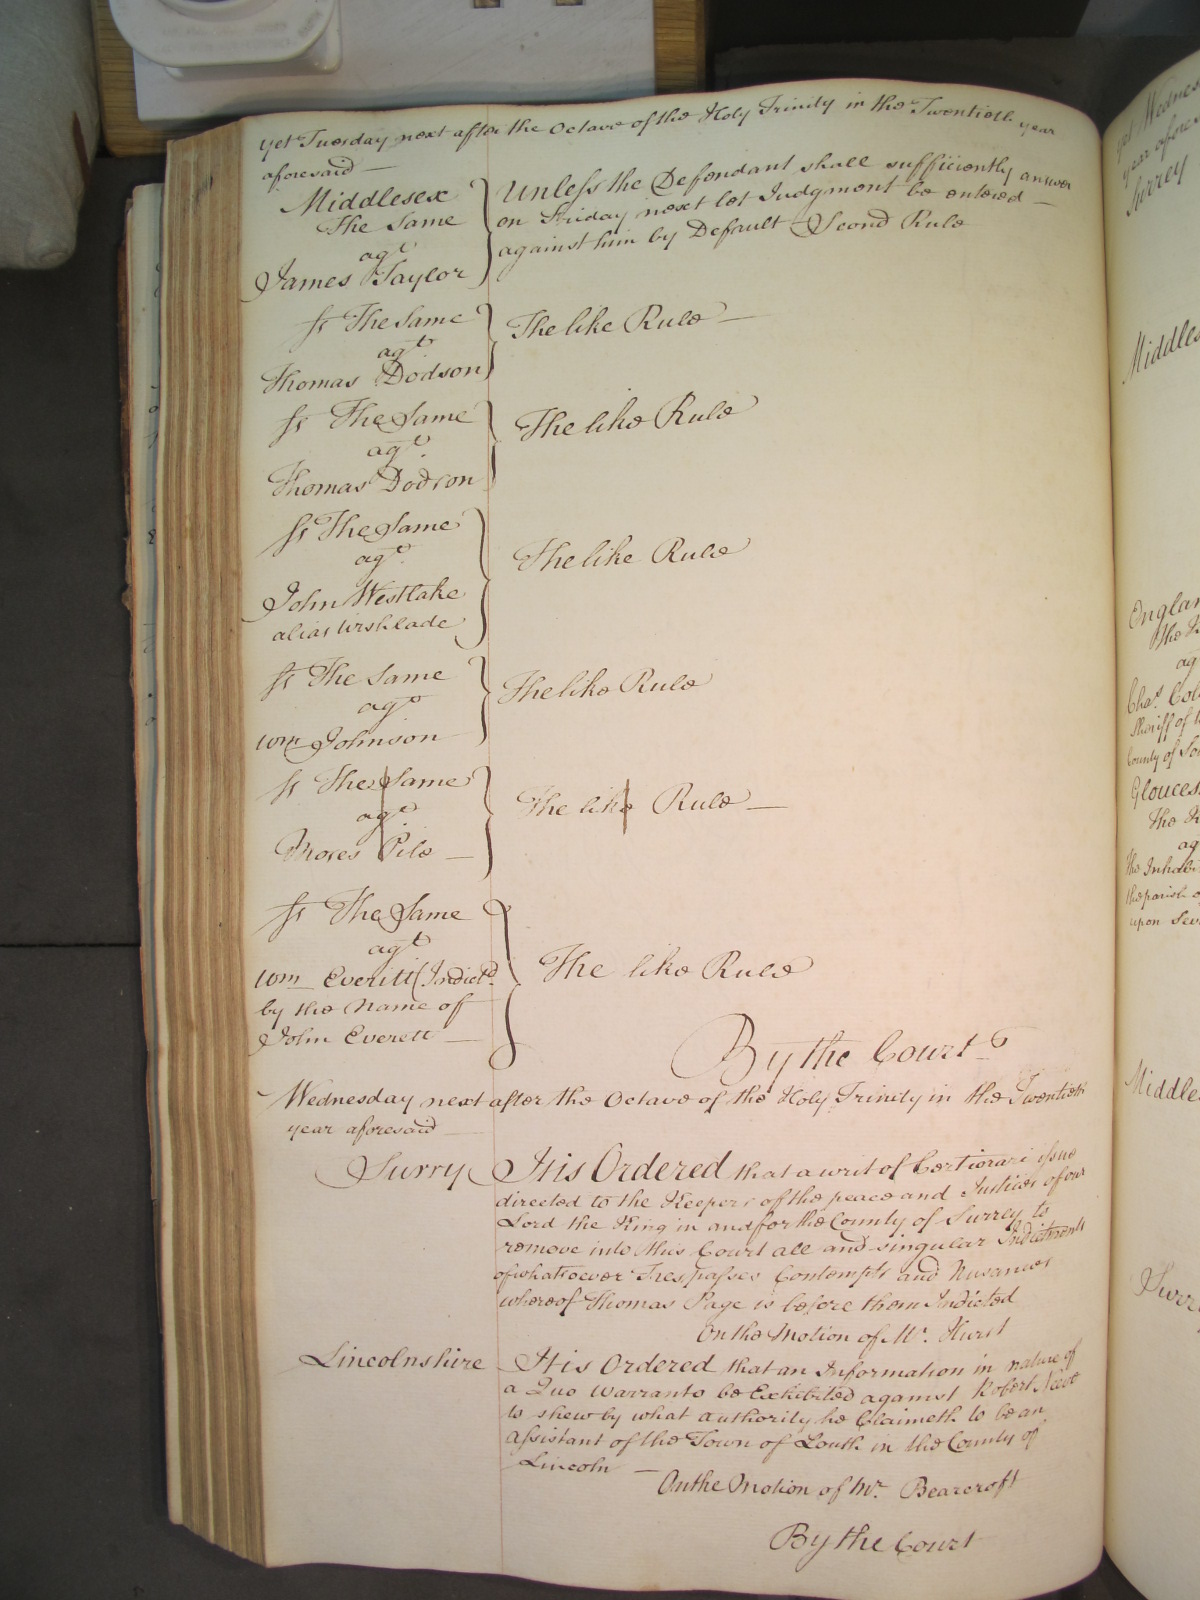 yet Tuesday next after the Octave of the Holy Trinity in the Twentieth year
aforesaid —
Middlesex
The Same
agt
James Taylor
Unless the Defendant shall sufficiently answer
on Friday next let Judgment be entered —
against him by Default — Second Rule
The Same
agt
Thomas Dodson
The like Rule —
The Same
agt
Thomas Dodson
The like Rule
The Same
agt
John Westlake
alias Urshlade
The like Rule
The Same
agt
Wm Johnson
The like Rule
The Same
agt
Moses Pile —
The like Rule —
The Same
agt
Wm Everitt (Indictd
by the Name of
John Everett —
The like Rule
By the Court
Wednesday next after the Octave of the Holy Trinity in the Twentieth
year aforesaid —
Surry
It is Ordered that a writ of Certiorari issue
directed to the Keepers of the peace and Justices of our
Lord the King in and for the County of Surrey to
remove into this Court all and singular Indictments
of whatsoever Trespasses Contempts and Nusances
whereof Thomas Page is before them Indicted
On the Motion of Mr. Hurst
Lincolnshire
It is Ordered that an Information in nature of
a Quo Warranto be Exhibited against Robert
to shew by what authority he Claimeth to be an
Assistant of the Town of Louth in the County of
Lincoln —
On the Motion of Mr. Bearcroft
By the Court
Middles
Englan
ag
Chas. Col
County of So
Glouces
ag
the parish o
upon Sev
Middle